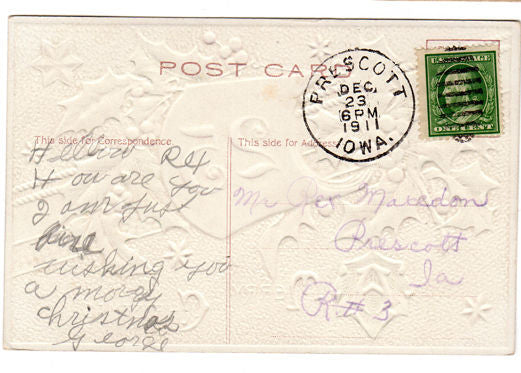 POST CARD
PRESCOTT
DEC
23
6 PM
1911
IOWA.
U.S. POSTAGE
ONE CENT
This side for Correspondence.
This side for Address
Hellow Rex
How are you
I am Just
fine
wishing you
a
christmas
George
Mr Rex
Prescott
Ia
R # 3